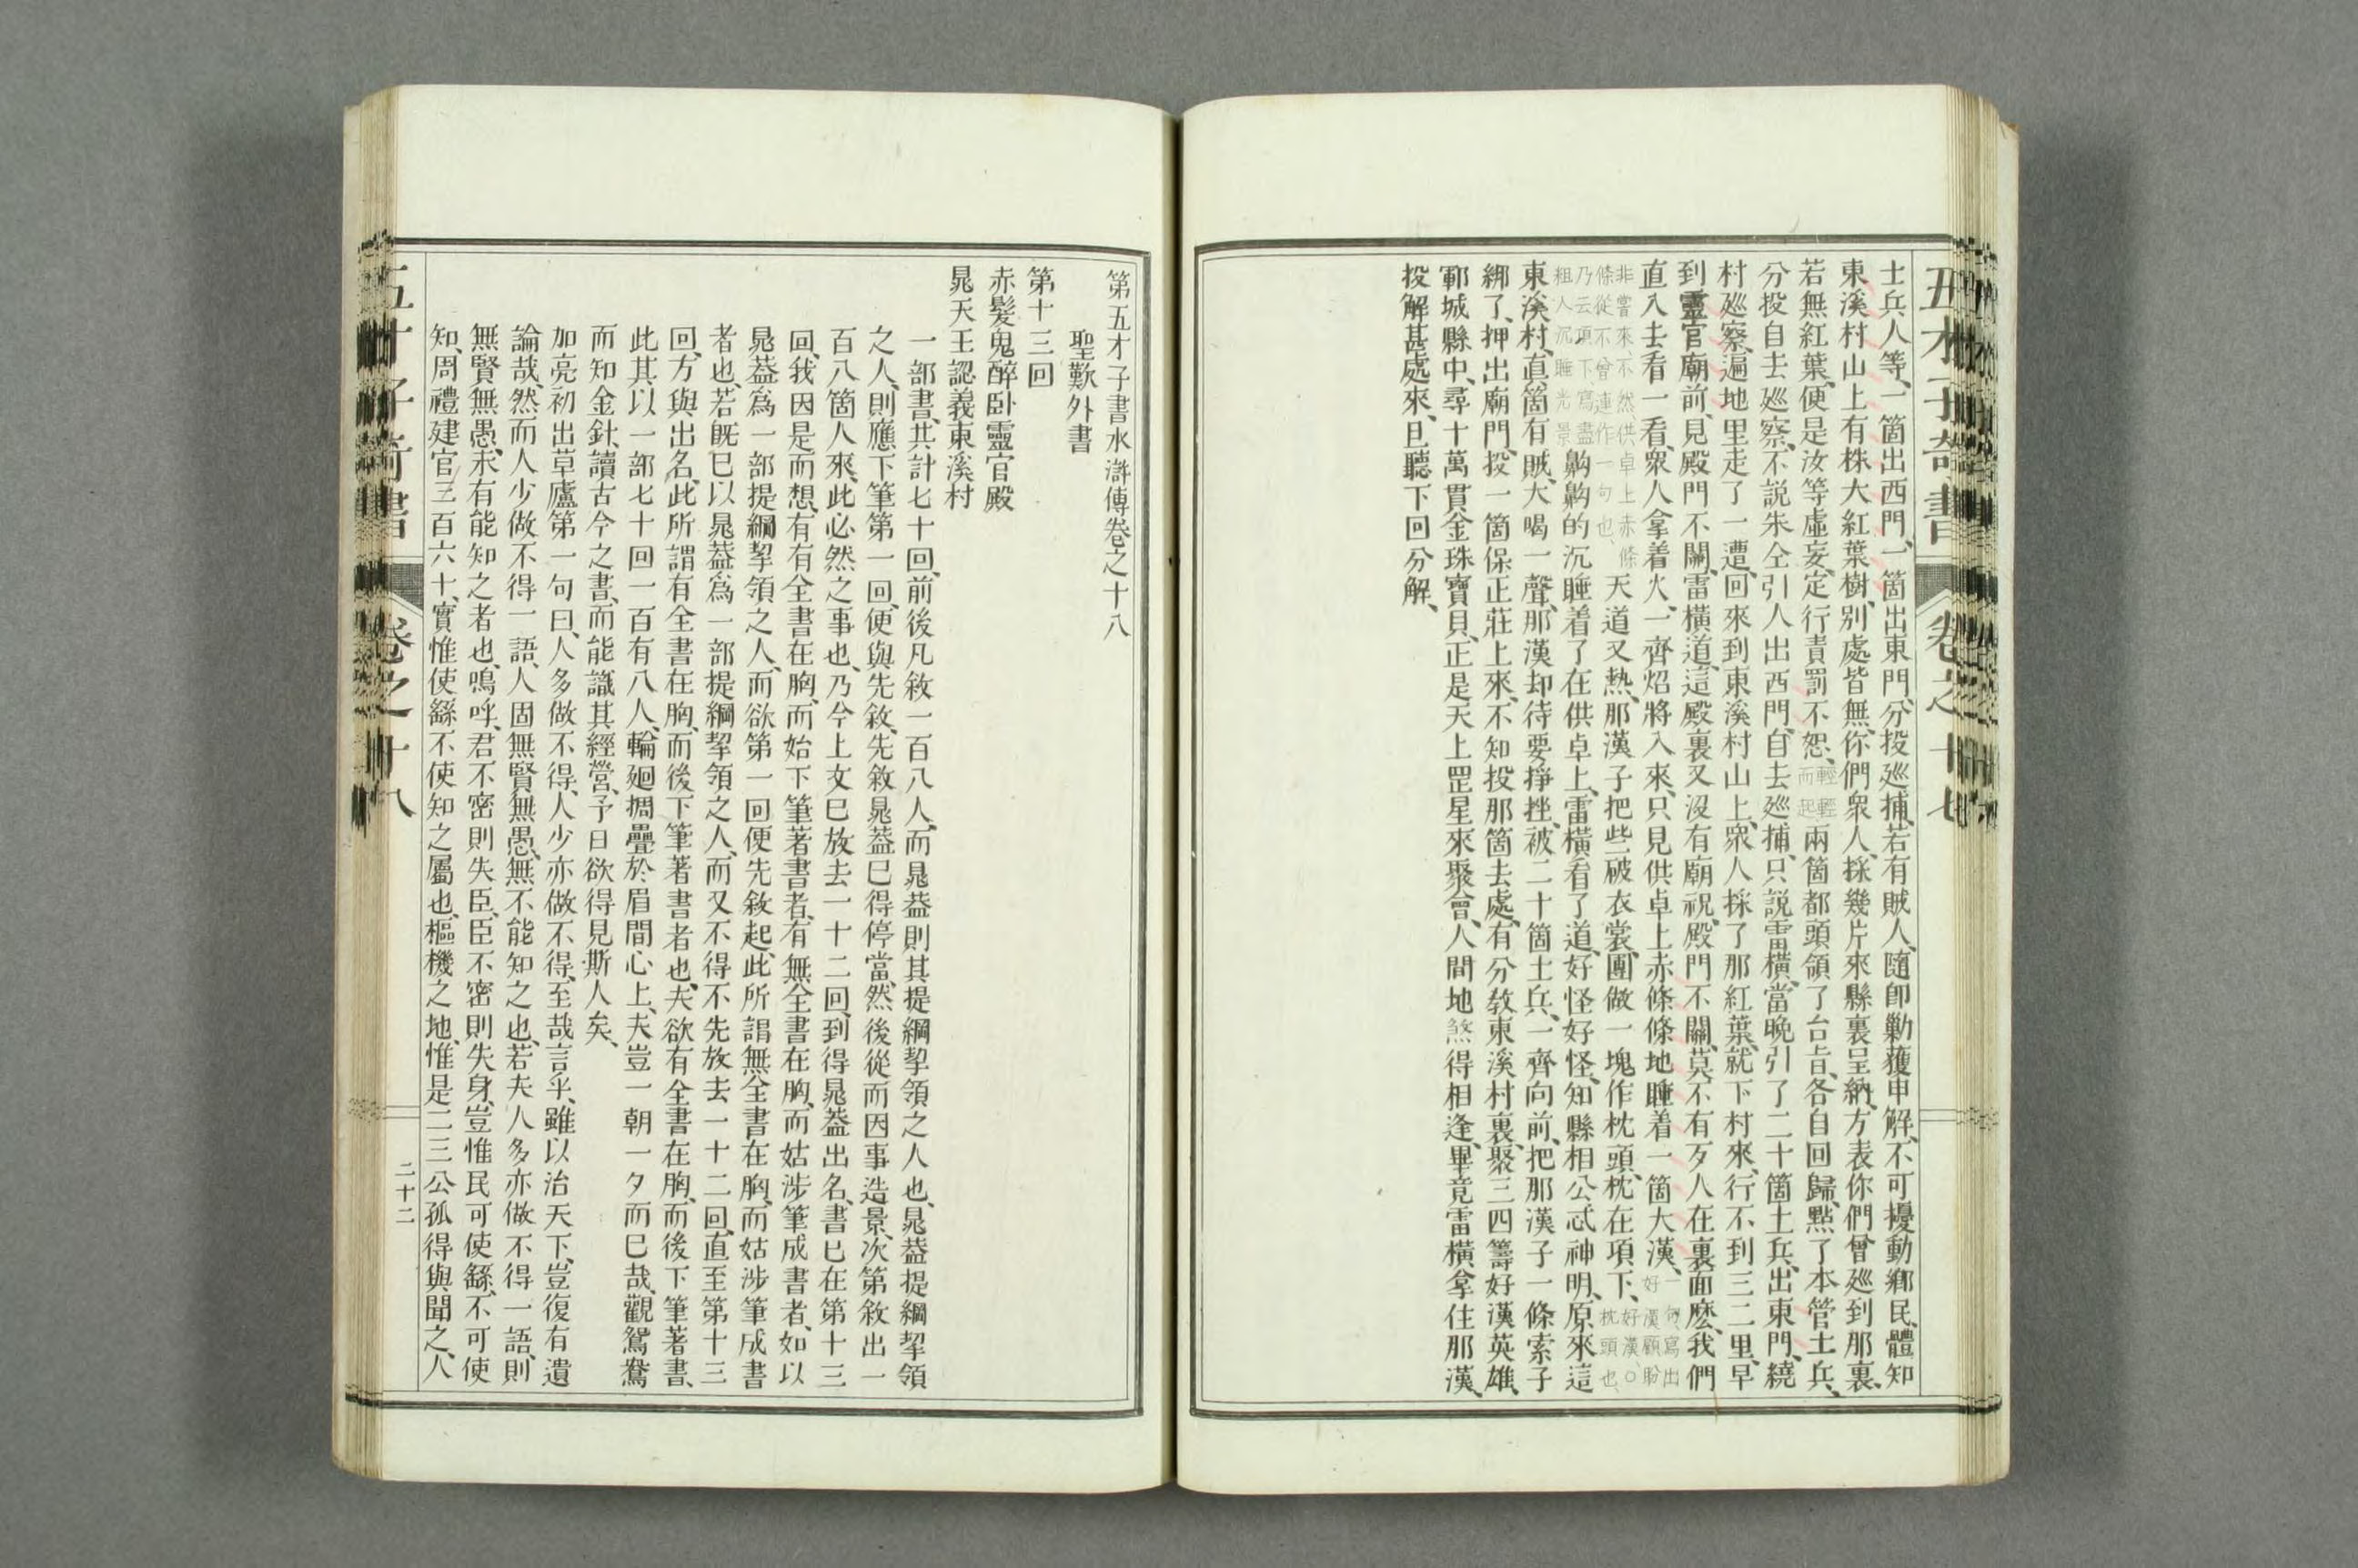 五才子奇書
卷之十七
士兵人等、一箇出西門、一箇出東門、分投廵捕、若有賊人、隨卽勦獲申解、不可擾動鄕民、體知
東溪村山上有株大紅葉樹、别處皆無、你們衆人、採幾片來縣裏呈納、方表你們曾廵到那裏、
若無紅葉、便是汝等虛妄、定行責罰不恕、輕輕而起兩箇都頭領了台旨、各自回歸、點了本管土兵、
分投自去廵察、不説朱仝引人出西門、自去廵捕、只説雷橫、當晚引了二十箇土兵、出東門、繞
村廵察、遍地里走了一遭、回來到東溪村山上、衆人採了那紅葉、就下村來、行不到三二里、早
到靈官廟前、見殿門不關、雷橫道、這殿裏又沒有廟祝、殿門不關、莫不有歹人在裏面麽、我們
直入去看一看、衆人拿着火、一齊炤將入來、只見供卓上赤條條地睡着一箇大漢、一句、寫出好漢顧盼
非嘗來、不然、供卓上赤條條從不曾連作一句也、天道又熱、那漢子把些破衣裳、團做一塊作枕頭、枕在項下、好漢、○枕頭也、
乃云項下、寫盡粗人沉睡光景鼾鼾的沉睡着了在供卓上、雷橫看了道、好怪好怪、知縣相公忒神明、原來這
東溪村、直箇有賊、大喝一聲、那漢却待要掙挫、被二十箇土兵、一齊向前、把那漢子一條索子
綁了、押出廟門、投一箇保正莊上來、不知投那箇去處、有分敎東溪村裏、聚三四籌好漢英雄、
鄆城縣中、尋十萬貫金珠寶貝、正是天上罡星來聚會、人間地煞得相逢、畢竟雷橫拿住那漢、
投解甚處來、且聽下回分解、
第五才子書水滸傳卷之十八
聖歎外書
第十三回
赤髮鬼醉臥靈官殿
晁天王認義東溪村
一部書、共計七十回、前後凡敘一百八人、而晁葢則其提綱挈領之人也、晁葢提綱挈領
之人、則應下筆第一回、便與先敘、先敘晁葢已得停當、然後從而因事造景、次第敘出一
百八箇人來、此必然之事也、乃今上文已放去一十二回、到得晁葢出名、書已在第十三
回、我因是而想、有有全書在胸、而始下筆著書者、有無全書在胸、而姑涉筆成書者、如以
晁葢爲一部提綱挈領之人、而欲第一回便先敘起、此所謂無全書在胸、而姑涉筆成書
者也、若旣已以晁葢爲一部提綱挈領之人、而又不得不先放去一十二回、直至第十三
回、方與出名、此所謂有全書在胸、而後下筆著書者也、夫欲有全書在胸、而後下筆著書、
此其以一部七十回一百有八人、輪廻摺疊於眉間心上、夫豈一朝一夕而已哉、觀鴛鴦
而知金針、讀古今之書、而能識其經營、予日欲得見斯人矣、
加亮初出草廬第一句曰、人多做不得、人少亦做不得、至哉言乎、雖以治天下、豈復有遺
論哉、然而人少做不得一語、人固無賢無愚、無不能知之也、若夫人多亦做不得一語、則
無賢無愚、未有能知之者也、嗚呼、君不密則失臣、臣不密則失身、豈惟民可使繇、不可使
知、周禮建官三百六十、實惟使繇不使知之屬也、樞機之地、惟是二三公孤得與聞之、人
五才子奇書
卷之十八
二十二